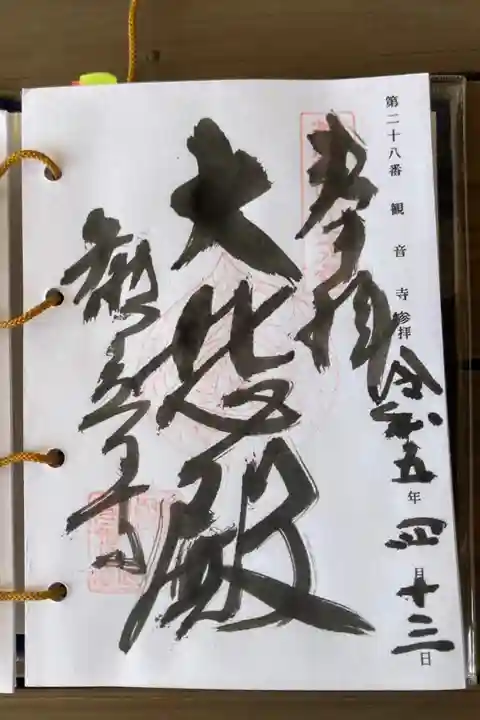 第二十八番 観音寺 参拝 令和五年四月十三日
奉拝
大悲殿
観音寺